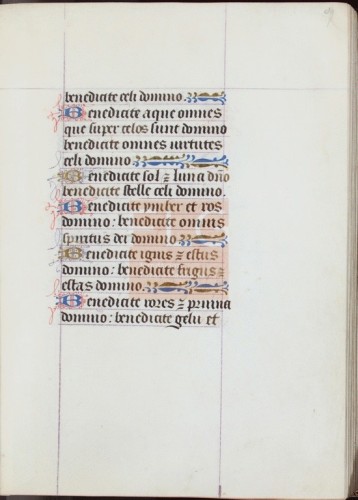 benedicite celi domino.
Benedicite aque omnes
que super celos sunt domino
benedicite omnes uirtutes
celi domino.
Benedicite sol ⁊ luna dño
benedicite stelle celi domino.
Benedicite ymber et ros
domino: benedicite omnis
spiritus dei domino
Benedicite ignis ⁊ estus
domino: benedicite frigus ⁊
estas domino.
Benedicite rores ⁊ pruina
domino: benedicite gelu et